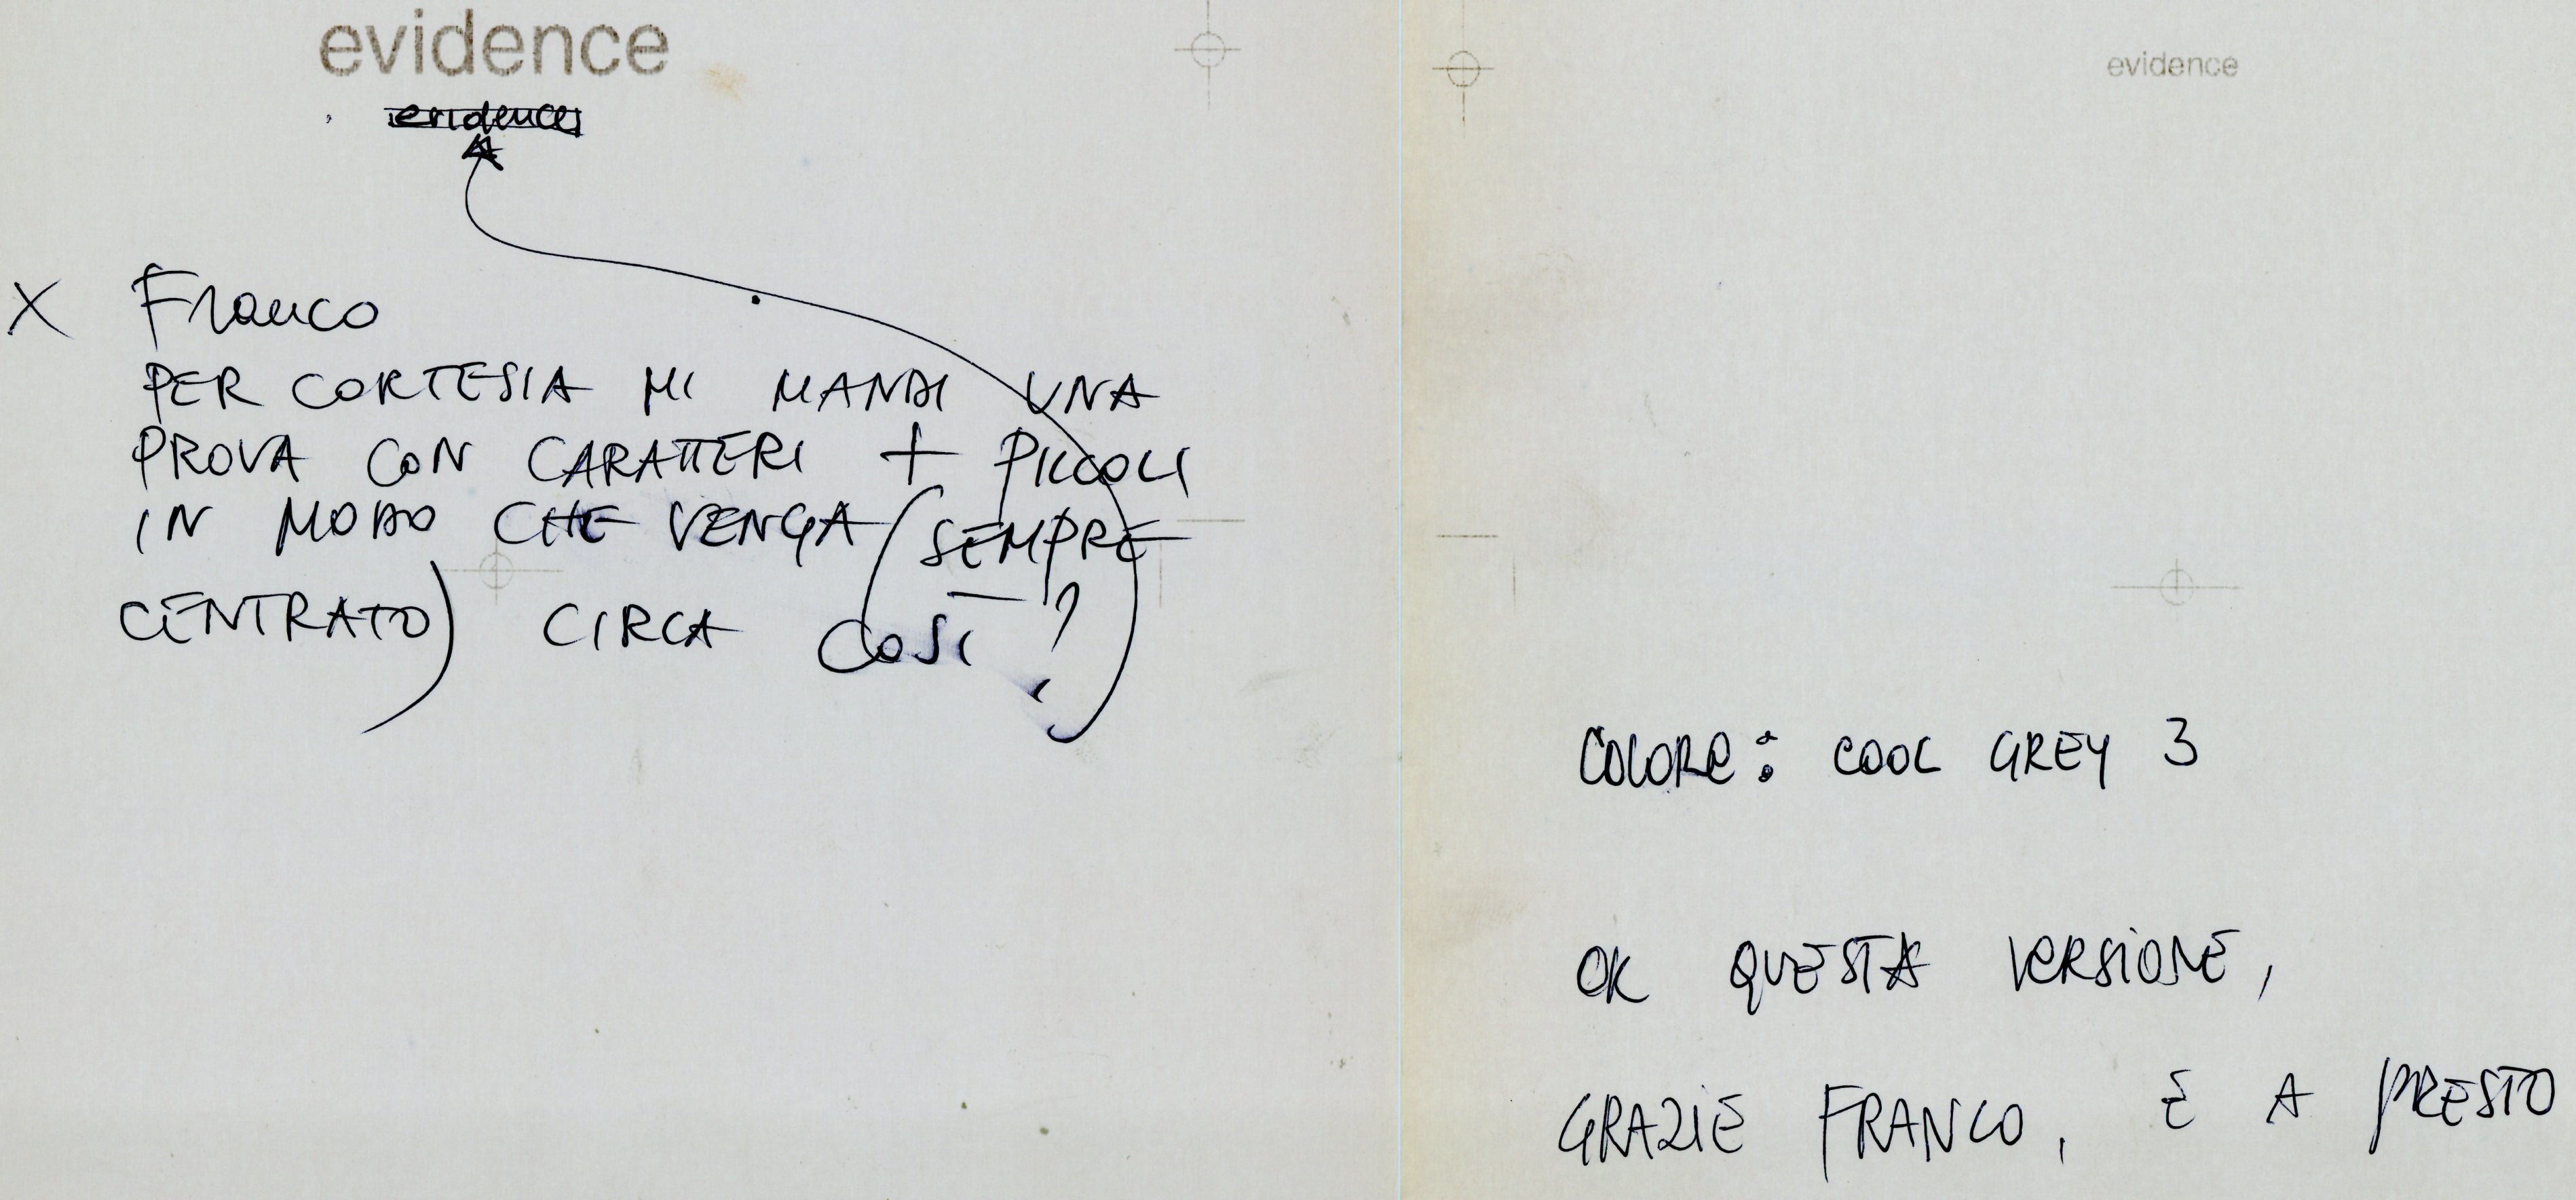 evidence
evidence
X Franco
PER CORTESIA MI MANDI UNA
PROVA CON CARATTERI + PICCOLI
IN MODO CHE VENGA (SEMPRE
CENTRATO) CIRCA COSI ?
evidence
COLORE: COOL GREY 3
OK QUESTA VERSIONE,
GRAZIE FRANCO, E A PRESTO